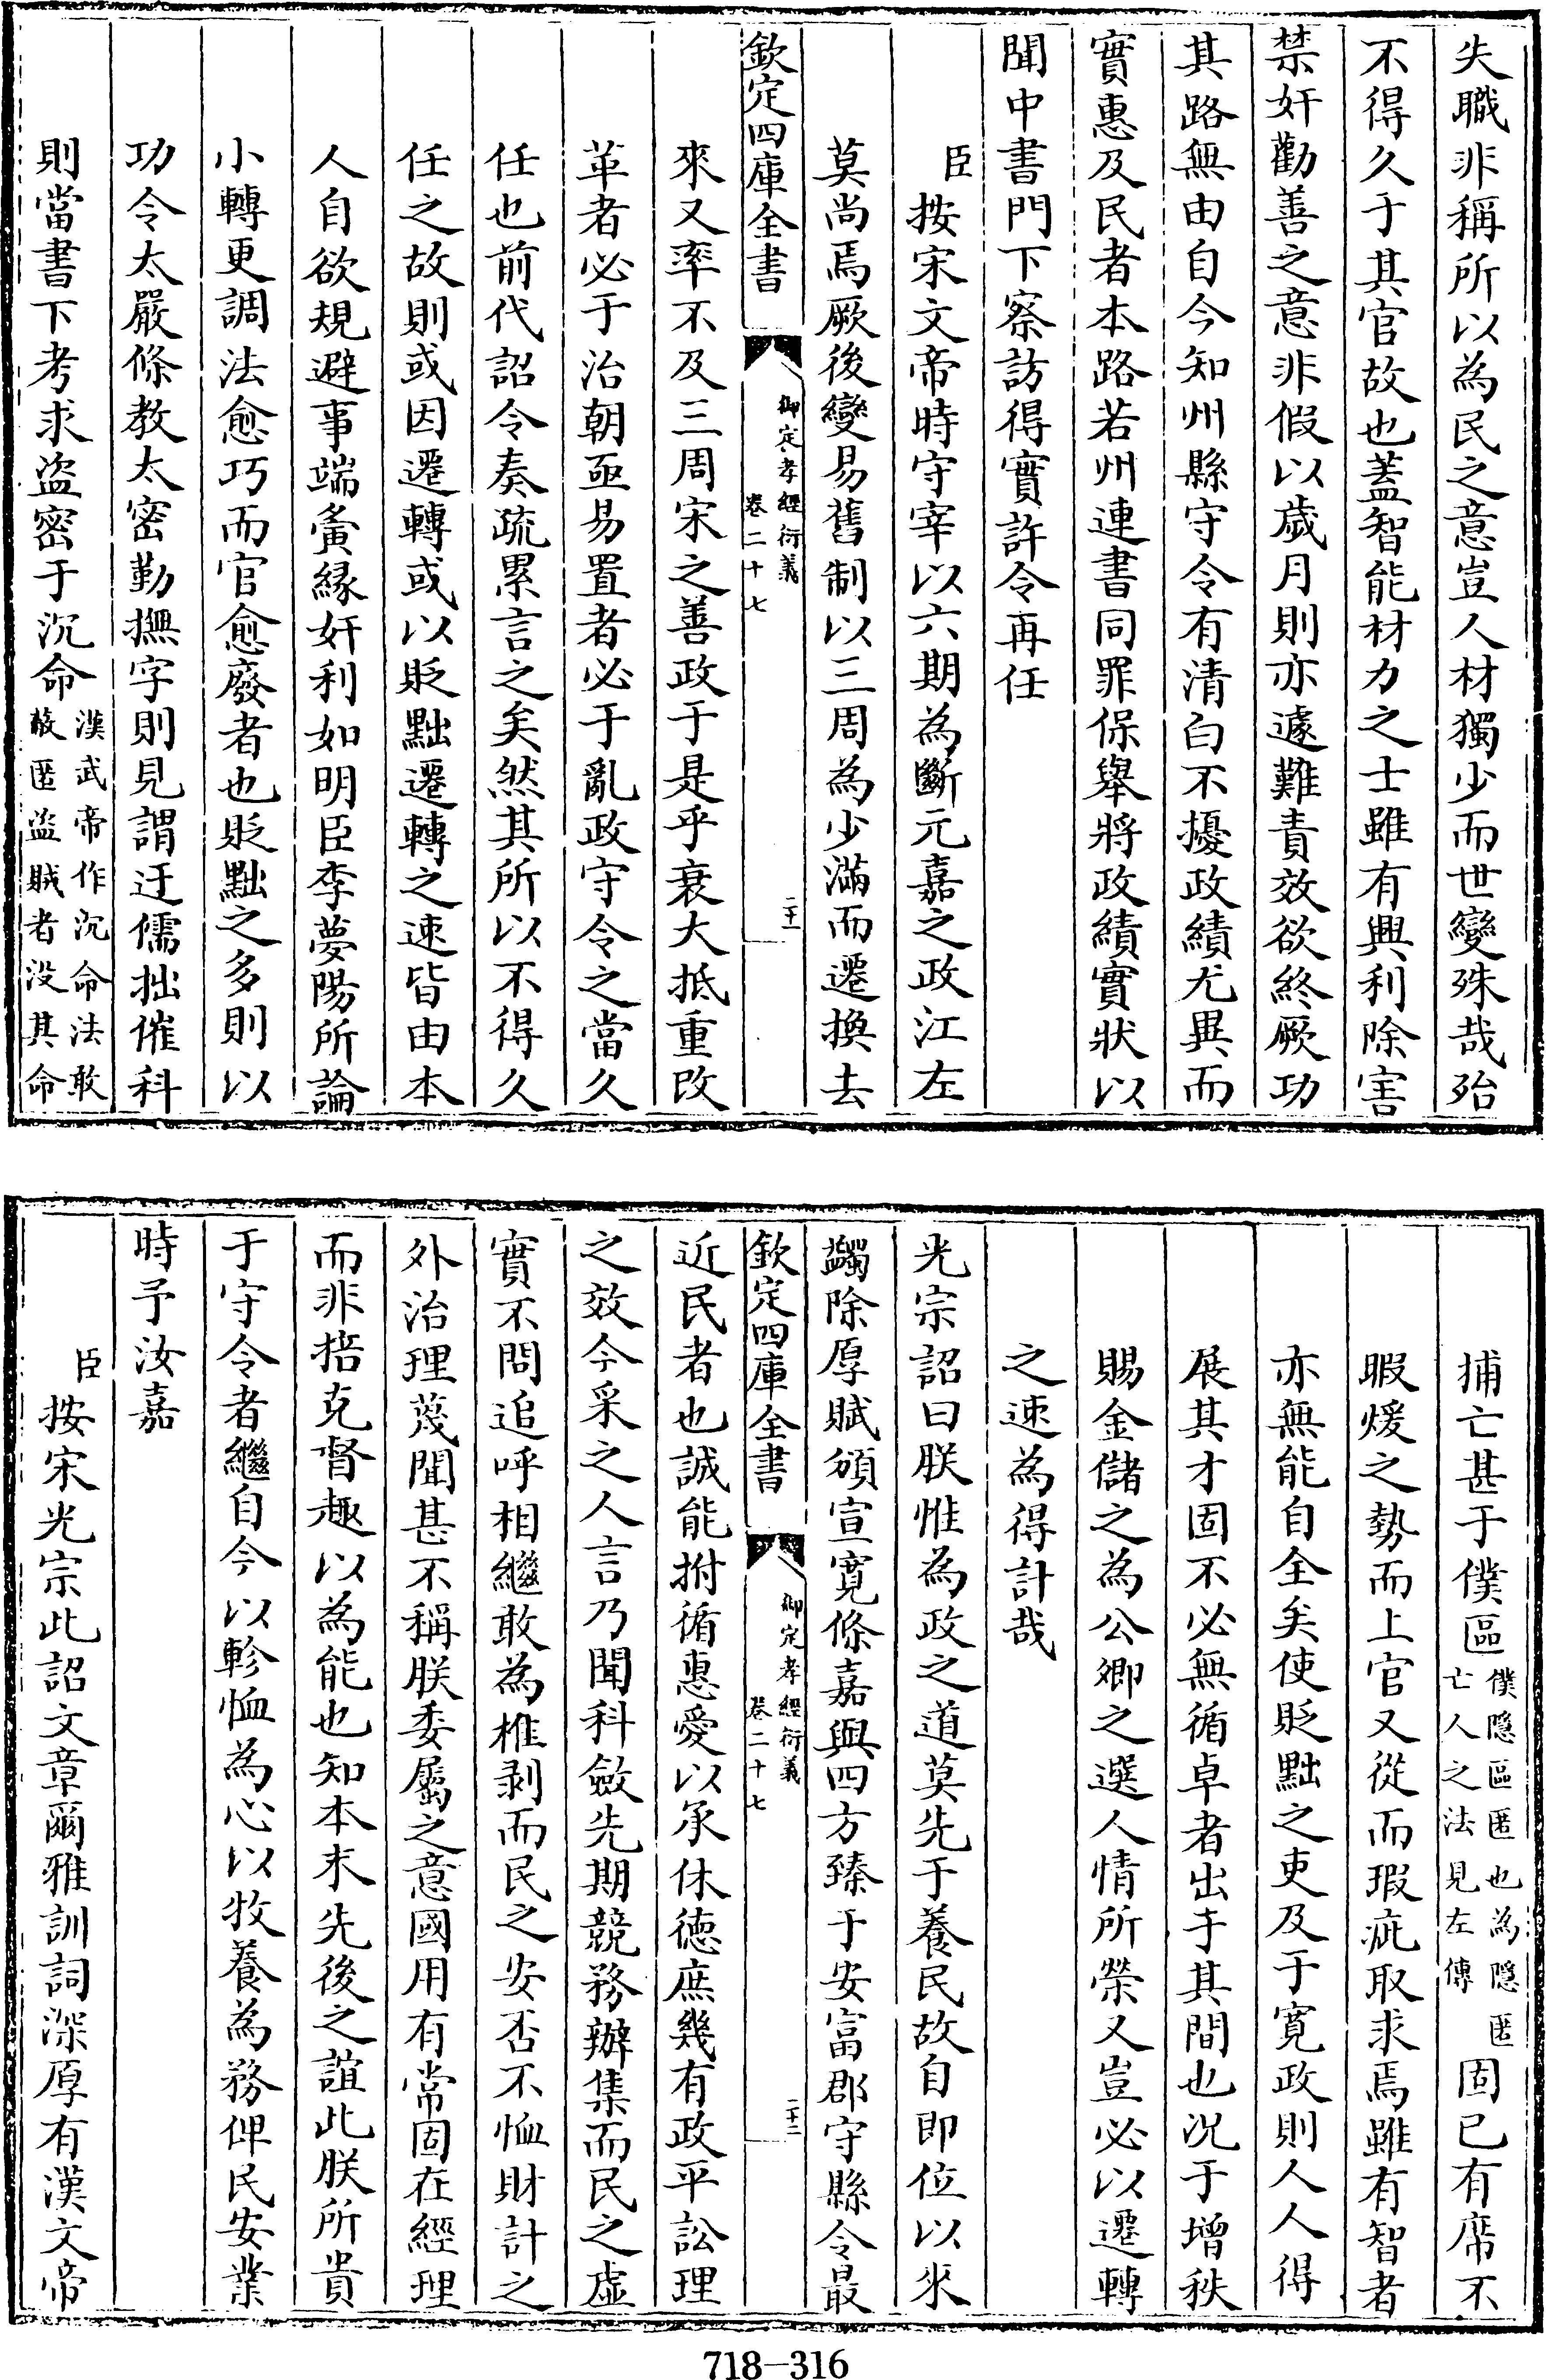 失職非稱所以為民之意豈人材獨少而世變殊哉殆
不得久于其官故也蓋智能材力之士雖有興利除害
禁奸勸善之意非假以歲月則亦遽難責效欲終厥功
其路無由自今知州縣守令有清白不擾政績尤異而
實惠及民者本路若州連書同罪保舉將政績實狀以
聞中書門下察訪得實許令再任
臣按宋文帝時守宰以六期為斷元嘉之政江左
莫尚焉厥後變易舊制以三周為少滿而遷換去
欽定四庫全書
御定孝經衍義
卷二十七
二十一
來又率不及三周宋之善政于是乎衰大抵重改
革者必于治朝亟易置者必于亂政守令之當久
任也前代詔令奏疏累言之矣然其所以不得久
任之故則或因遷轉或以貶黜遷轉之速皆由本
人自欲規避事端夤緣奸利如明臣李夢陽所論
小轉更調法愈巧而官愈廢者也貶黜之多則以
功令太嚴條教太密勤撫字則見謂迂儒拙催科
則當書下考求盜密于沉命漢武帝作沉命法敢
蔽匿盜賊者没其命
捕亡甚于僕區僕隱區匿也為隱匿
亡人之法見左傳
固已有席不
暇煖之勢而上官又從而瑕疵取求焉雖有智者
亦無能自全矣使貶黜之吏及于寛政則人人得
展其才固不必無循卓者出于其間也况于增秩
賜金儲之為公卿之選人情所榮又豈必以遷轉
之速為得計哉
光宗詔曰朕惟為政之道莫先于養民故自即位以來
蠲除厚賦頒宣寛條嘉與四方臻于安富郡守縣令最
欽定四庫全書
御定孝經衍義
卷二十七
二十二
近民者也誠能拊循惠愛以承休德庶幾有政平訟理
之效今采之人言乃聞科斂先期競務辦集而民之虚
實不問追呼相繼敢為椎剥而民之安否不恤財計之
外治理蔑聞甚不稱朕委屬之意國用有常固在經理
而非掊克督趣以為能也知本末先後之誼此朕所貴
于守令者繼自今以軫恤為心以牧養為務俾民安業
時予汝嘉
臣按宋光宗此詔文章爾雅訓詞深厚有漢文帝
718-316